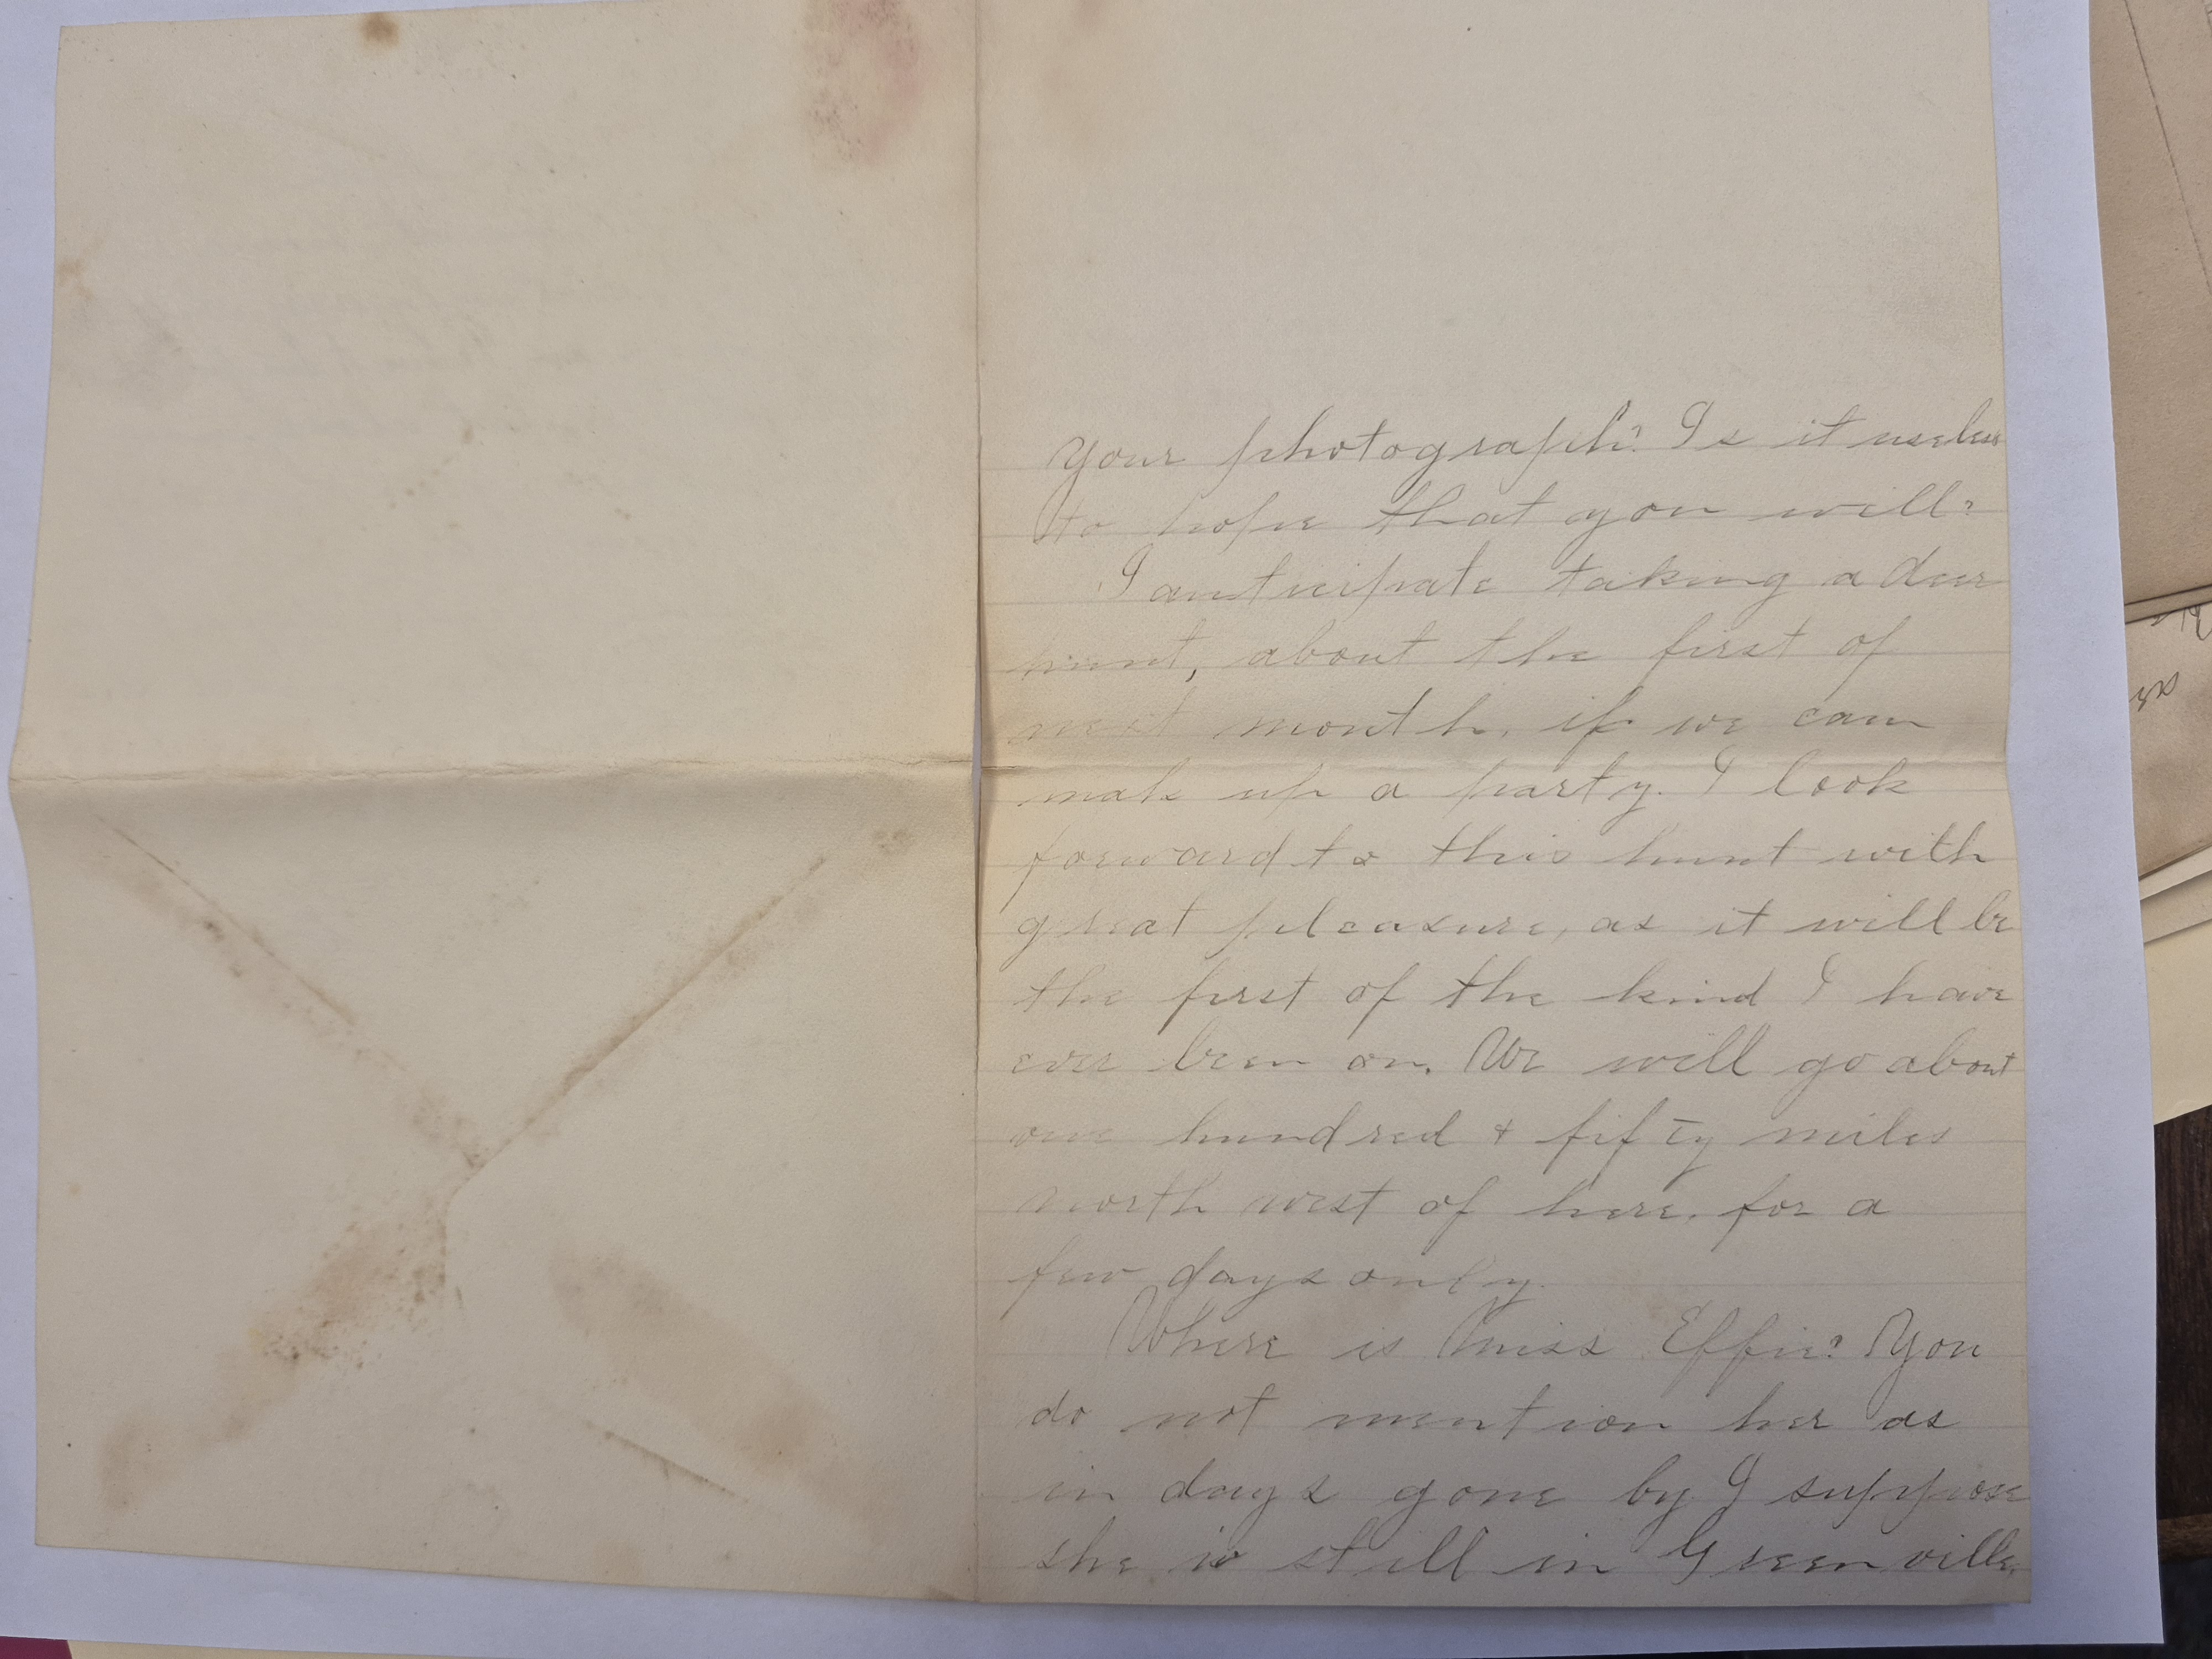 your photograph? Is it useless
to hope that you will?
I anticipate taking a deer
hunt, about the first of
next month, if we can
make up a party. I look
forward to this hunt with
great pleasure, as it will be
the first of the kind I have
ever been on. We will go about
one hundred & fifty miles
north west of here, for a
few days only.
Where is Miss Effie? You
do not mention her as
in days gone by I suppose
she is still in Greenville,